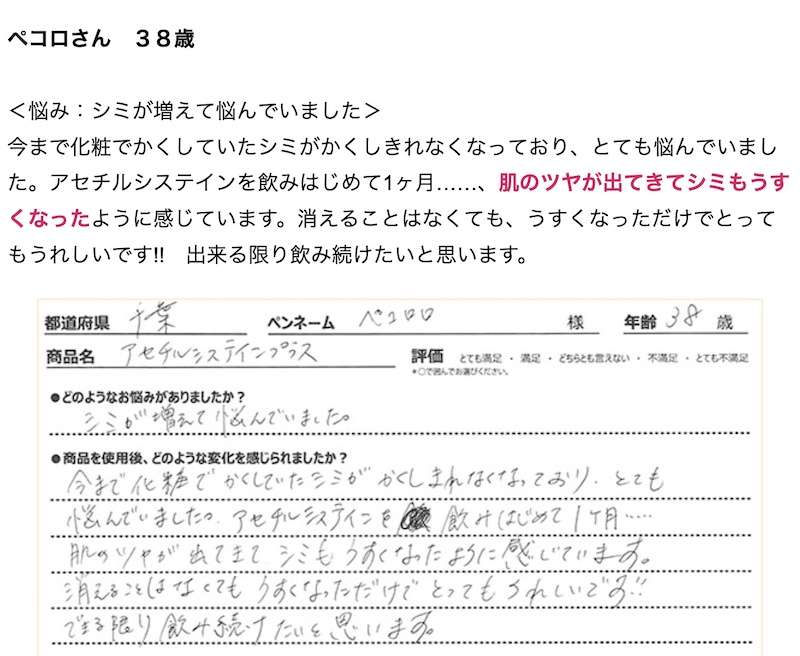 ペコロさん　３８歳
＜悩み：シミが増えて悩んでいました＞
今まで化粧でかくしていたシミがかくしきれなくなっており、とても悩んでいまし
た。アセチルシステインを飲みはじめて1ヶ月……、肌のツヤが出てきてシミもうす
くなったように感じています。消えることはなくても、うすくなっただけでとって
もうれしいです!!　出来る限り飲み続けたいと思います。
都道府県 千葉 ペンネーム ペコロロ 様 年齢 38 歳
商品名 アセチルシステインプラス 評価 とても満足 ・ 満足 ・ どちらとも言えない ・ 不満足 ・ とても不満足
*○で囲んでお選びください。
●どのようなお悩みがありましたか？
シミが増えて悩んでいました。
●商品を使用後、どのような変化を感じられましたか？
今まで化粧でかくしていたシミがかくしきれなくなっており、とても
悩んでいました。アセチルシステインを飲みはじめて1ヶ月……
肌のツヤが出てきてシミもうすくなったように感じています。
消えることはなくてもうすくなっただけでとってもうれしいです!!
できる限り飲み続けたいと思います。